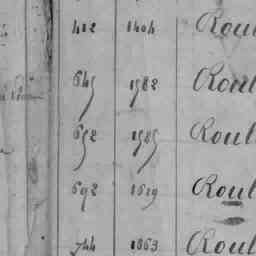 412 1404 Roul
645 1582 Roul
652 1585 Roul
692 1619 Roul
744 1663 Roul